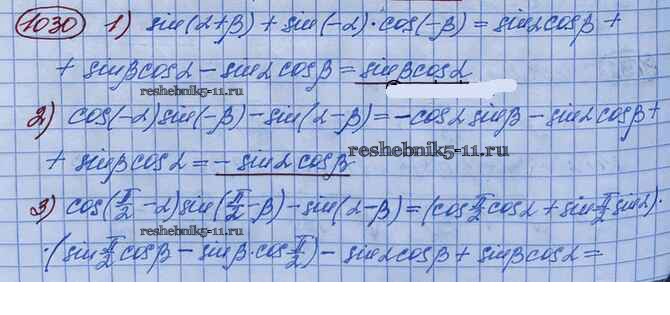 1030 1) sin(α+β) + sin(-α)·cos(-β) = sinαcosβ +
+ sinβcosα - sinαcosβ = sinβcosα
reshebnik5-11.ru
2) cos(-α)sin(-β) - sin(α-β) = -cosαsinβ - sinαcosβ +
+ sinβcosα = - sinαcosβ
reshebnik5-11.ru
3) cos(π/2 - α)sin(π/2 - β) - sin(α-β) = (cos π/2 cosα + sin π/2 sinα)·
reshebnik5-11.ru
·(sin π/2 cosβ - sinβ·cos π/2) - sinαcosβ + sinβcosα =